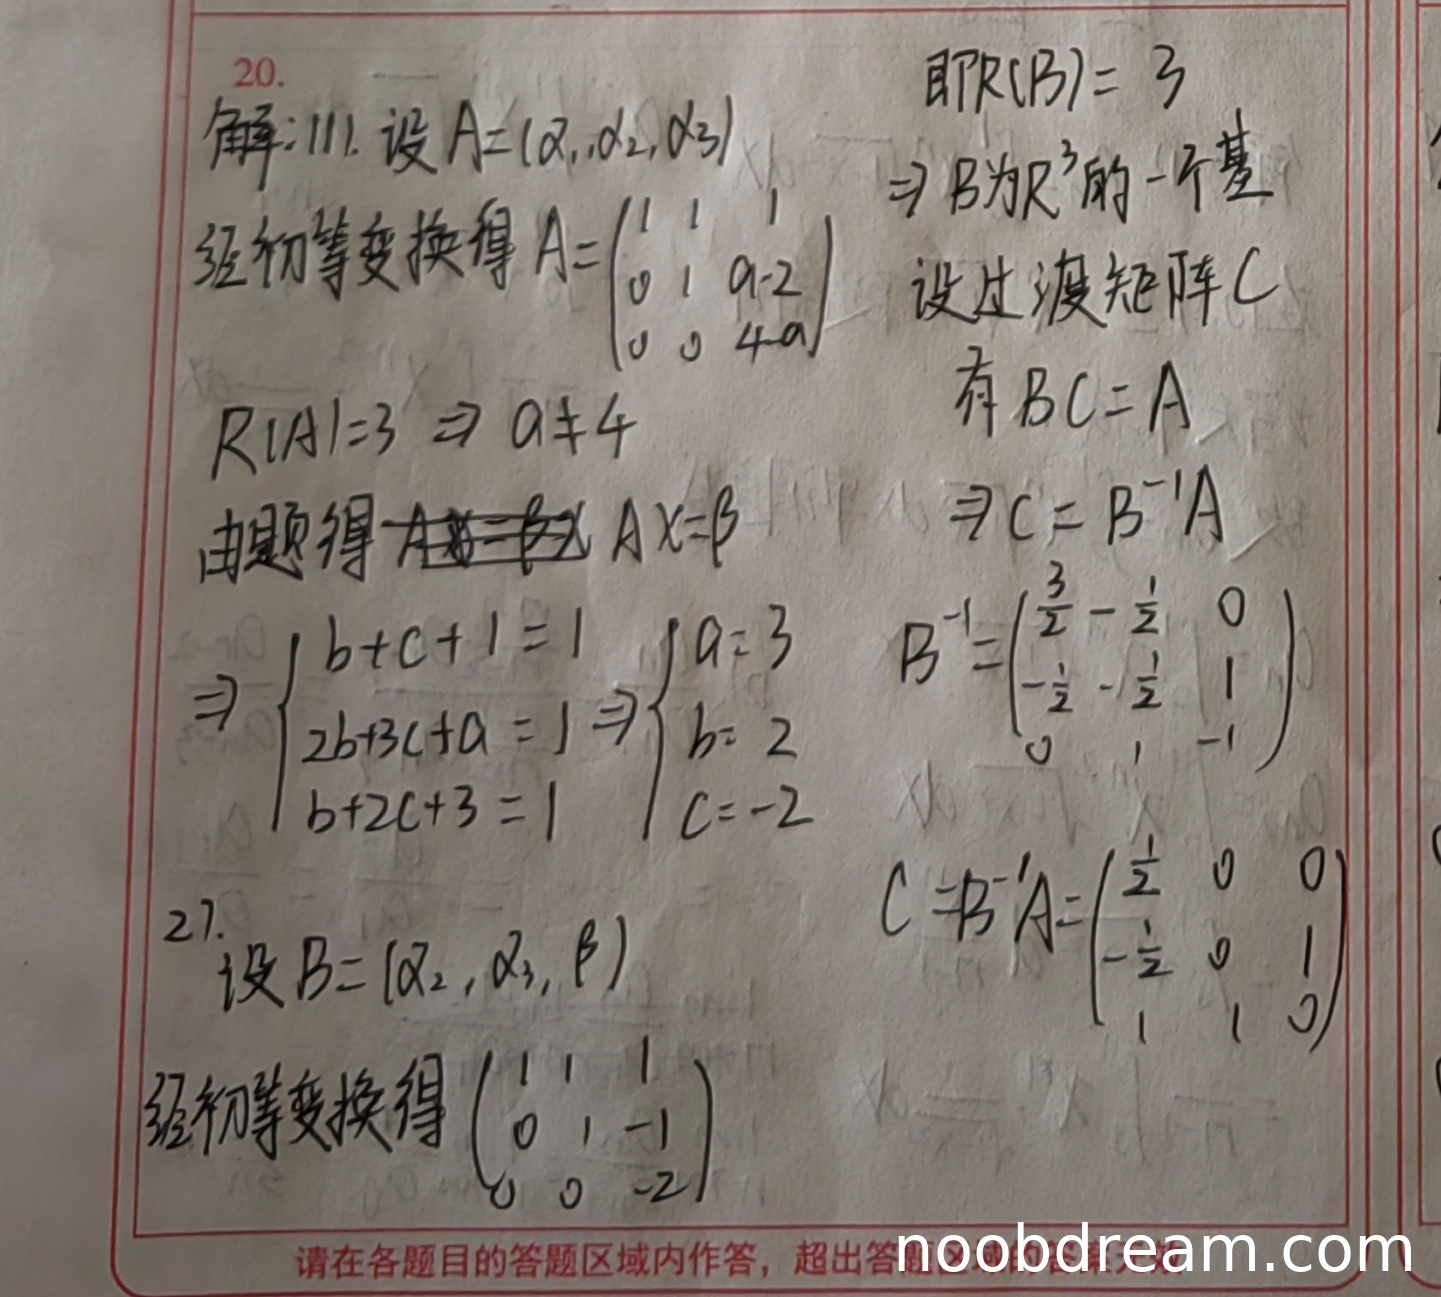 20.
解:(1).设A=(α₁,α₂,α₃)
经初等变换得 A=(1 1 1
0 1 a-2
0 0 4-a)
R(A)=3 ⇒ a≠4
由题得 AX=β
⇒ { b+c+1=1
2b+3c+a=1
b+2c+3=1
⇒ { a=3
b=2
c=-2
2).
设B=(α₂,α₃,β)
经初等变换得 (1 1 1
0 1 -1
0 0 -2)
即R(B)=3
⇒ B为R³的一个基
设过渡矩阵C
有BC=A
⇒ C=B⁻¹A
B⁻¹=(3/2 -1/2 0
-1/2 -1/2 1
0 1 -1)
C=B⁻¹A=(1/2 0 0
-1/2 0 1
1 1 0)
请在各题目的答题区域内作答，超出答题区域的答案无效
noobdream.com